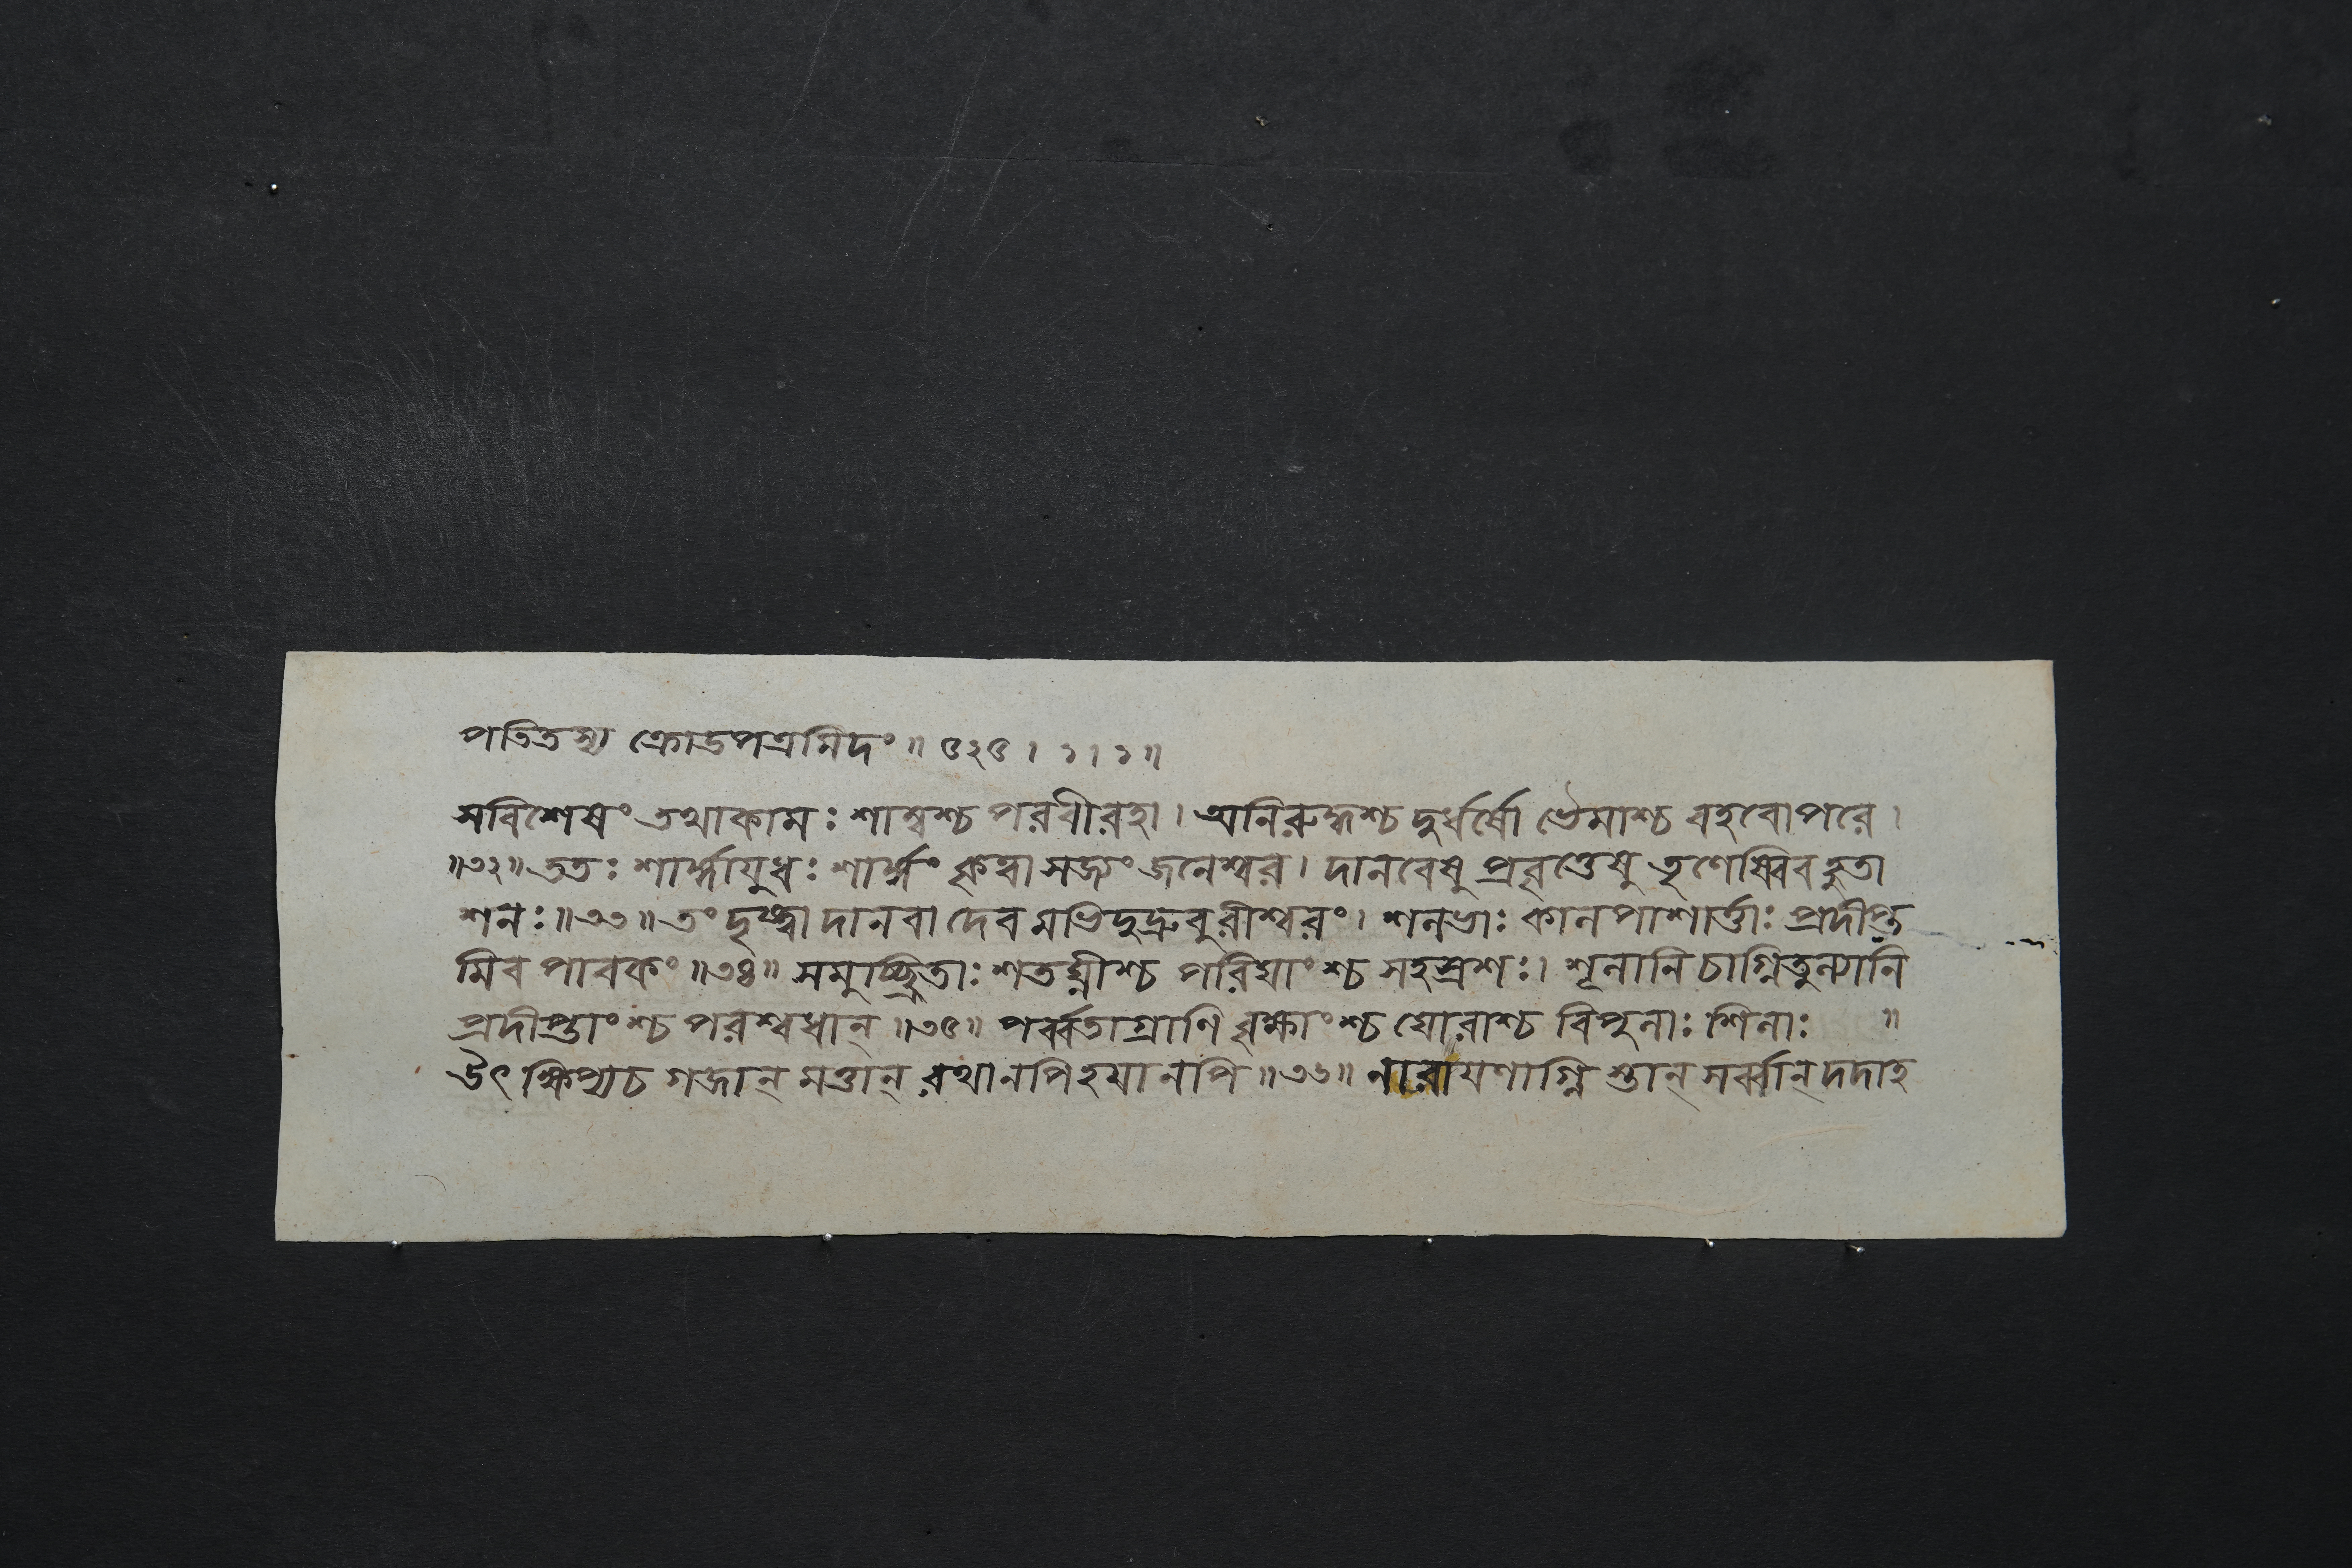 পতিতস্য ক্রোডপত্রমিদং ॥ ৫২৫ । ১ । ১ ॥
সবিশেষং তথাকামঃ শাম্বশ্চ পরবীরহা । অনিরুদ্ধশ্চ দুর্ধর্ষো ভৈমাশ্চ বহবোপরে ।
॥৩২॥ ততঃ শার্ঙ্গায়ুধঃ শার্ঙ্গং কৃত্বা সজ্যং জনেশ্বর । দানবেষু প্রবৃত্তেষু তৃণেষ্বিবহুতা
শনঃ ॥৩৩॥ তং দৃষ্ট্বা দানবা দেবমভিদুদ্রুবুরীশ্বরং । শনভাঃ কানপাশার্ত্তাঃ প্রদীপ্ত
মিব পাবকং ॥৩৪॥ সমুচ্ছ্রিতাঃ শতঘ্নীশ্চ পরিঘাংশ্চ সহস্রশঃ । শূনানি চাগ্নিতুন্যানি
প্রদীপ্তাংশ্চ পরশ্বধান্ ॥৩৫॥ পর্ব্বতাগ্রাণি বৃক্ষাংশ্চ ঘোরাশ্চ বিপুনাঃ শিনাঃ ॥
উৎক্ষিপ্যচ গজান্ মত্তান্ রথানপিহয়ানপি ॥৩৬॥ নারায়ণাগ্নি স্তান্ সর্ব্বান্ দদাহ